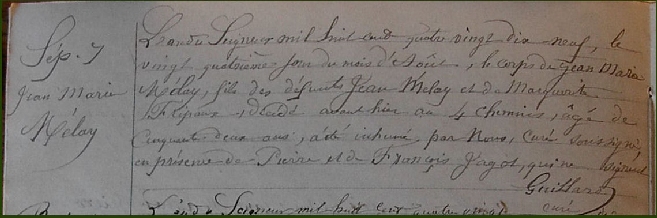 Sép. 7
Jean Marie
Mélay
L'an du Seigneur mil huit cent quatre vingt dix neuf, le
vingt quatrième jour du mois d'Août, le corps de Jean Marie
Mélay, fils des défunts Jean Mélay et de Marguerite
décédé avant hier au 4 chemins, âgé de
Cinquante deux ans, a été inhumé par Nous, curé soussigné,
en présence de Pierre et de François Jagot, qui ne signent
Guillard
curé
L'an du Seigneur mil huit cent quatre vingt